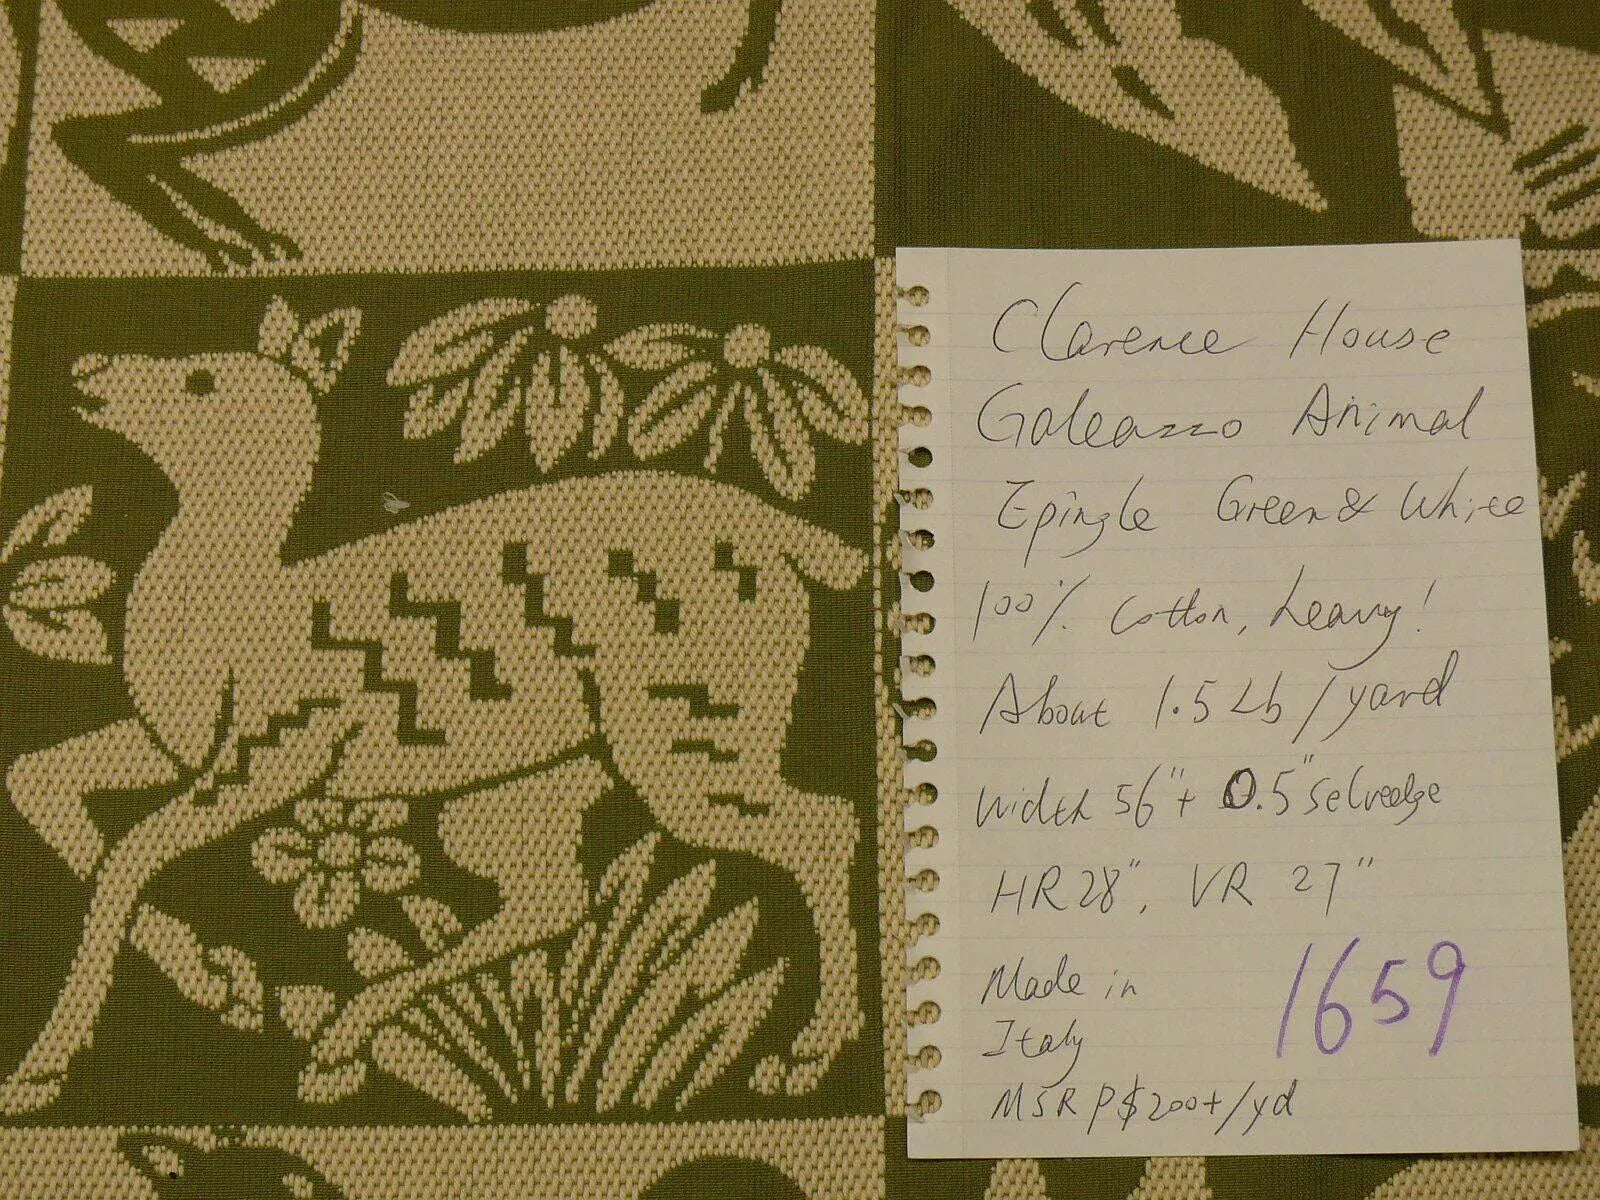 Clarence House
Galeazzo Animal
Epingle Green & White
100% Cotton, heavy!
About 1.5 Lb / yard
Width 56" + 0.5" Selvedge
HR 28", VR 27"
Made in
Italy
1659
MSRP $200+/yd